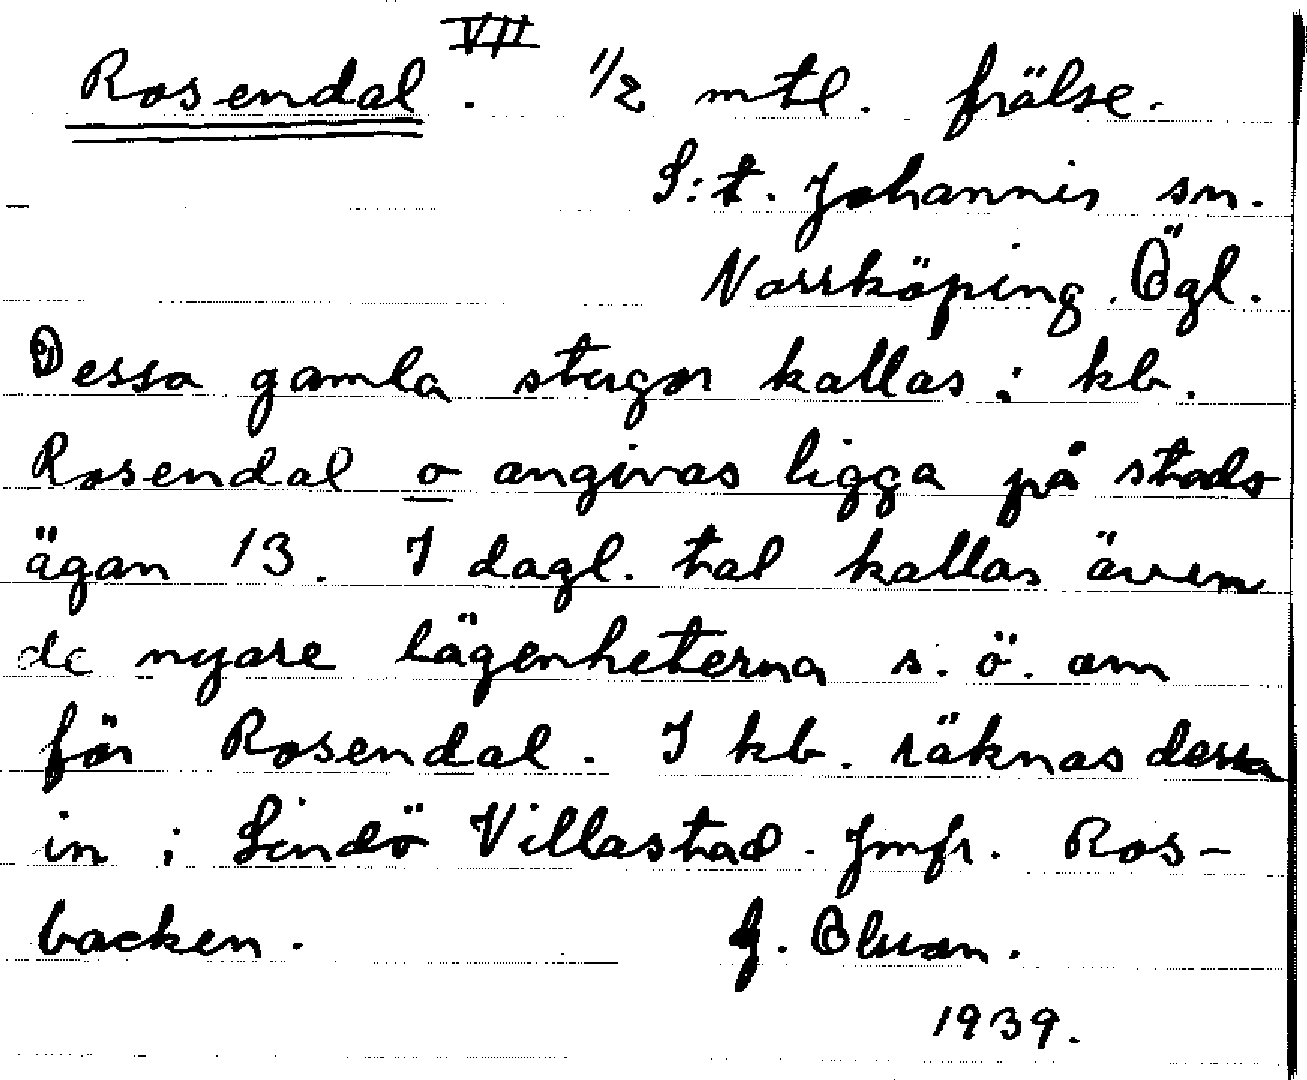 Rosendal VII. 1/2 mtl. frälse.
S:t. Johannis sn.
Norrköping. Ögl.
Dessa gamla stugor kallas i kb.
Rosendal o angivas ligga på stads
ägan 13. I dagl. tal kallas även
de nyare lägenheterna s. ö. om
för Rosendal. I kb. räknas dessa
in i Lindö Villastad. Jmfr. Ros-
backen. G. Olsson.
1939.